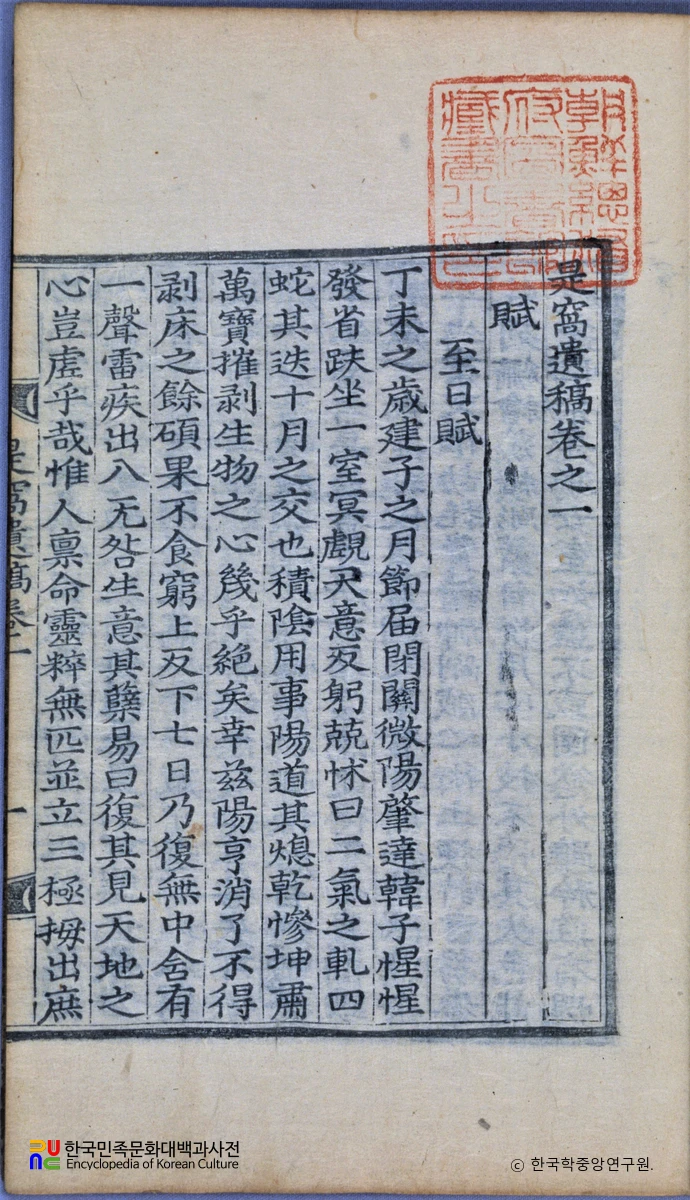 朝鮮總督
府圖書館
藏書之印
是窩遺稿卷之一
賦
至日賦
丁未之歲建子之月節届閉關微陽肇達韓子惺惺
發省趺坐一室冥覰天意反躬兢怵曰二氣之軋四
蛇其迭十月之交也積陰用事陽道其熄乾慘坤肅
萬寶摧剥生物之心幾乎絶矣幸兹陽亨消了不得
剥床之餘碩果不食窮上反下七日乃復無中舍有
一聲雷疾出入无咎生意其蘖易曰復其見天地之
心豈虗乎哉惟人禀命靈粹無匹並立三極拇出庶
是窩遺稿卷一
一
한국민족문화대백과사전
Encyclopedia of Korean Culture
© 한국학중앙연구원.